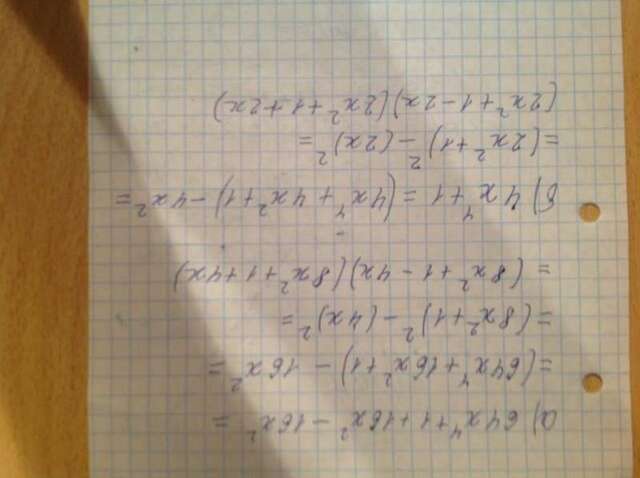 а) 64x⁴+1+16x²−16x² =
=(64x⁴+16x²+1)− 16x² =
=(8x²+1)²−(4x)²=
= (8x²+1−4x)(8x²+1+4x)
б) 4x⁴+1 =(4x⁴+4x²+1)−4x²=
=(2x²+1)²−(2x)²=
(2x²+1−2x)(2x²+1+2x)